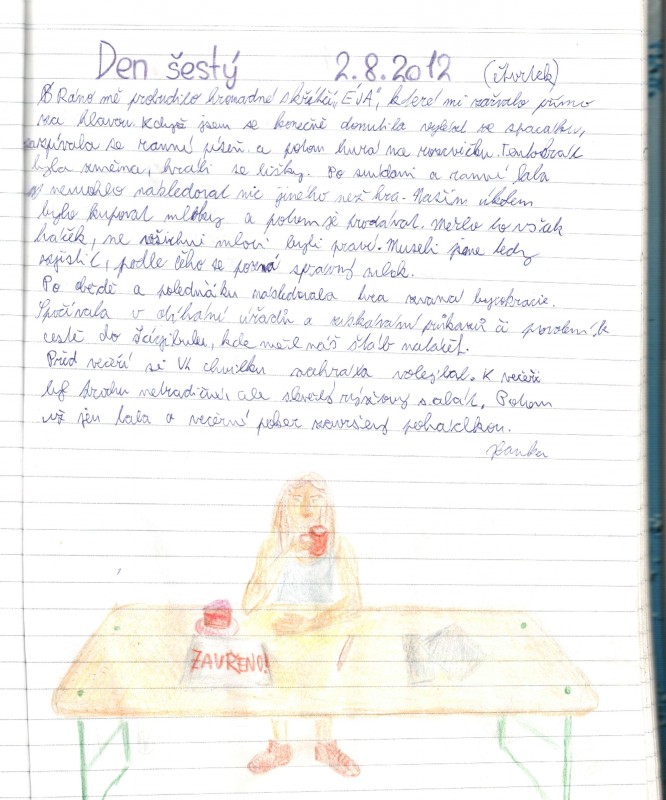 Den šestý 2.8.2012 (čtvrtek)
Ráno mě probudilo hromadné skřítčí „ÉJA“, které mi zařvalo přímo
na hlavou. Když jsem se konečně donutila vylézt ze spacáku,
zazpívala se ranní píseň a potom hurá na rozcvičku. Tentokrát
byla změna, hráli se lišky. Po snídani a ranní lala
nemohlo následovat nic jiného než hra. Naším úkolem
bylo kupovat mloky a potom je prodávat. Mělo to však
háček, ne všichni mloci byli praví. Museli jsme tedy
zjistit, podle čeho se pozná správný mlok.
Po obědě a poledňáku následovala hra zvaná byrokracie.
Spočívala v obíhání úřadů a získávání průkazů či povolení k
cestě do Žázjibulu, kde měl náš štáb natáčet.
Před večeří se VK chvilku zahrála volejbal. K večeři
byl trochu netradiční, ale skvělý rýžový salát. Potom
už jen lala a večerní pobor završený pohádkou.
Hanka
ZAVŘENO!